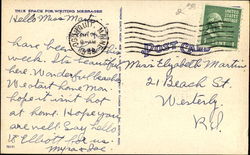 THIS SPACE FOR WRITING MESSAGES
Hello Miss Martin
have been here this
week. It's beautiful
here. Wonderful beaches
We start home Mon.
hope it isn't hot
at home. Hope you
are well. Say hello
to Elliott for us.
Myra & Doc.
POST CARD
Miss Elizabeth Martin
21 Beach St.
Westerly
R.I.